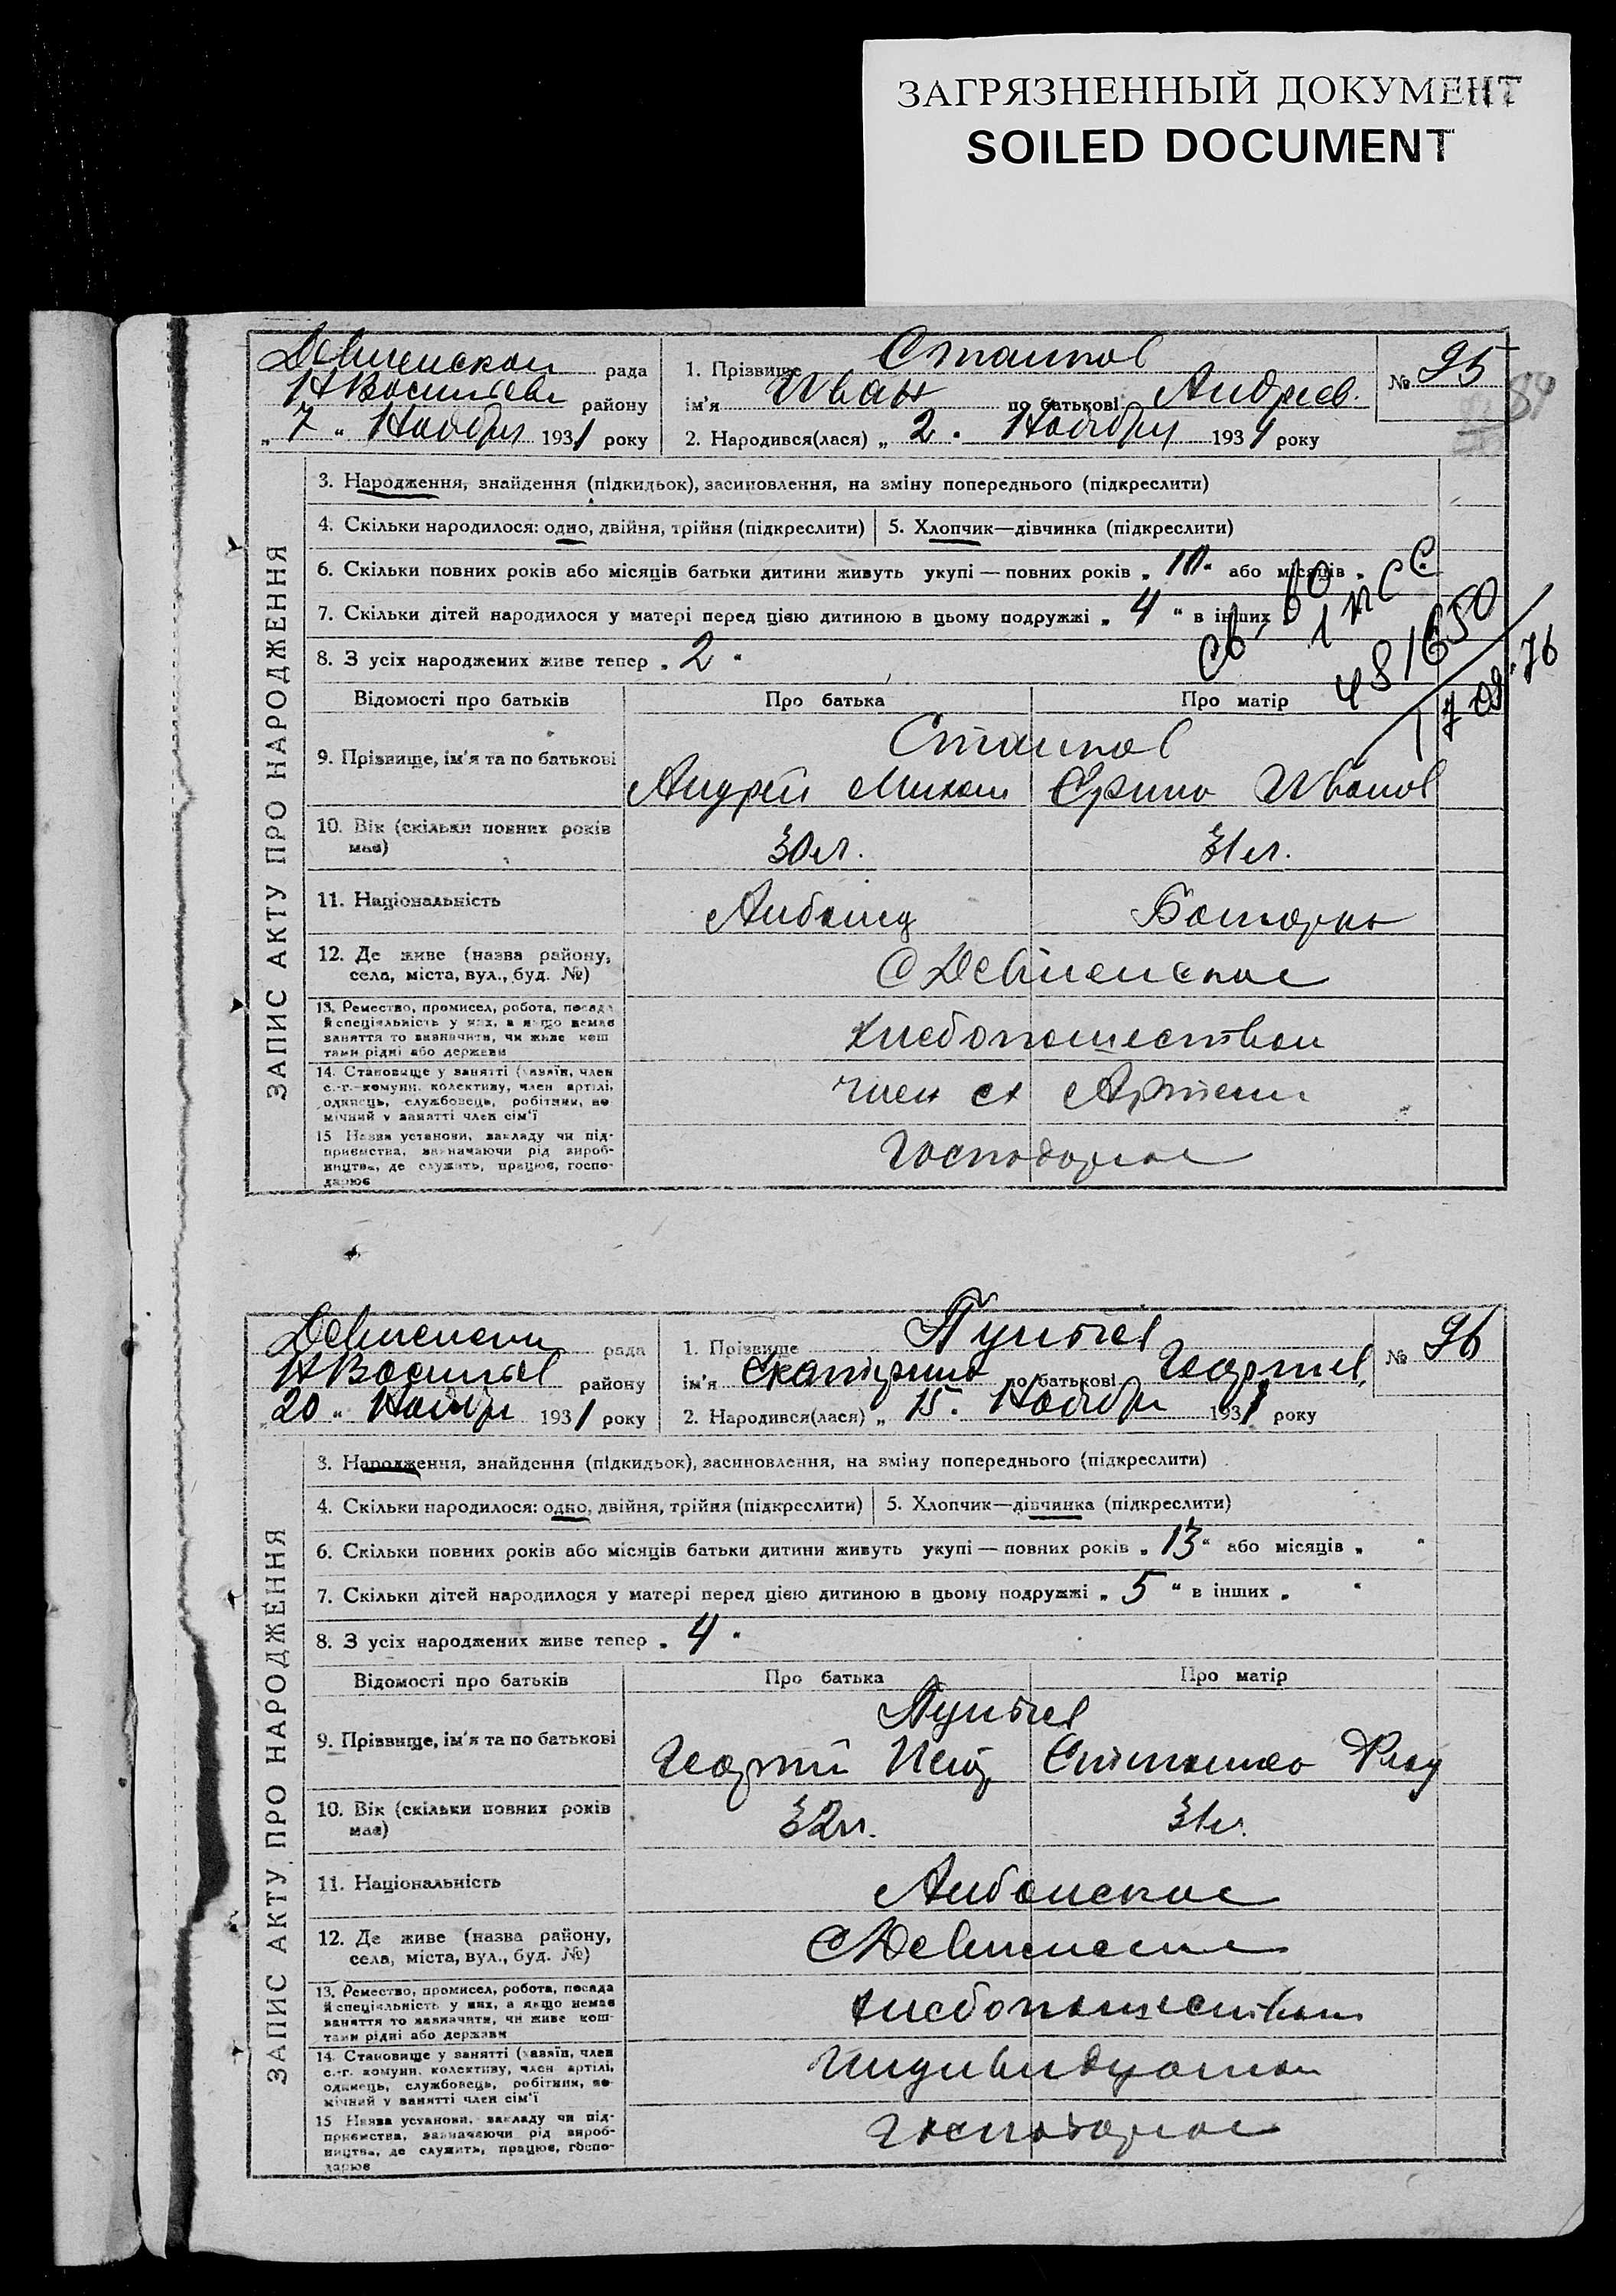 ЗАГРЯЗНЕННЫЙ ДОКУМЕНТ
SOILED DOCUMENT
Девненской рада
районe
району
„ 7 „ Ноября 1931 року
1. Прізвище
ім'я Иван по батькові Андреев.
2. Народився(лася) „ 2 . Ноября 1931 року
№ 95
84
ЗАПИС АКТУ ПРО НАРОДЖЕННЯ
3. Народження, знайдення (підкидьок), засиновлення, на зміну попереднього (підкреслити)
4. Скільки народилося: одно, двійня, трійня (підкреслити)
5. Хлопчик—дівчинка (підкреслити)
6. Скільки повних років або місяців батьки дитини живуть укупі — повних років „ 10 “ або місяців „
7. Скільки дітей народилося у матері перед цією дитиною в цьому подружжі „ 4 “ в інших
8. З усіх народжених живе тепер „ 2 “
Відомості про батьків
Про батька
Про матір
9. Прізвище, ім'я та по батькові
Андрей Михаил
Иванов
10. Вік (скільки повних років має)
30 л.
31 л.
11. Національність
Албанец
Болгарка
12. Де живе (назва району, села, міста, вул., буд. №)
С Девненское
13. Ремество, промисел, робота, посада
й спеціяльність у них, а якщо немає
заняття то визначити, чи живе кош-
тами рідні або держави
хлебопашеством
14. Становище у занятті (хазяїн, член
с.-г. комуни, колективу, член артілі,
одинець, службовець, робітник, по-
мічний у занятті член сім'ї
член сх Артели
15 Назва установи, закладу чи під-
приємства, зазначаючи рід вироб-
ництва, де служить, працює, госпо-
дарює
481650
рада
району
20 „ Ноября 1931 року
1. Прізвище
ім'я Екатерина по батькові Георгиев.
2. Народився(лася) „ 15. Ноября 1931 року
№ 96
ЗАПИС АКТУ ПРО НАРОДЖЕННЯ
3. Народження, знайдення (підкидьок), засиновлення, на зміну попереднього (підкреслити)
4. Скільки народилося: одно, двійня, трійня (підкреслити)
5. Хлопчик—дівчинка (підкреслити)
6. Скільки повних років або місяців батьки дитини живуть укупі — повних років „ 13 “ або місяців „ “
7. Скільки дітей народилося у матері перед цією дитиною в цьому подружжі „ 5 “ в інших „ “
8. З усіх народжених живе тепер „ 4 “
Відомості про батьків
Про батька
Про матір
9. Прізвище, ім'я та по батькові
Георгий
10. Вік (скільки повних років має)
32 л.
31 л.
11. Національність
Албанское
12. Де живе (назва району, села, міста, вул., буд. №)
13. Ремество, промисел, робота, посада
й спеціяльність у них, а якщо немає
заняття то зазначити, чи живе кош-
тами рідні або держави
хлебопашеством
14. Становище у занятті (хазяїн, член
с.-г. комуни, колективу, член артілі,
одинець, службовець, робітник, по-
мічний у занятті член сім'ї
15 Назва установи, закладу чи під-
приємства, зазначаючи рід вироб-
ництва, де служить, працює, госпо-
дарює